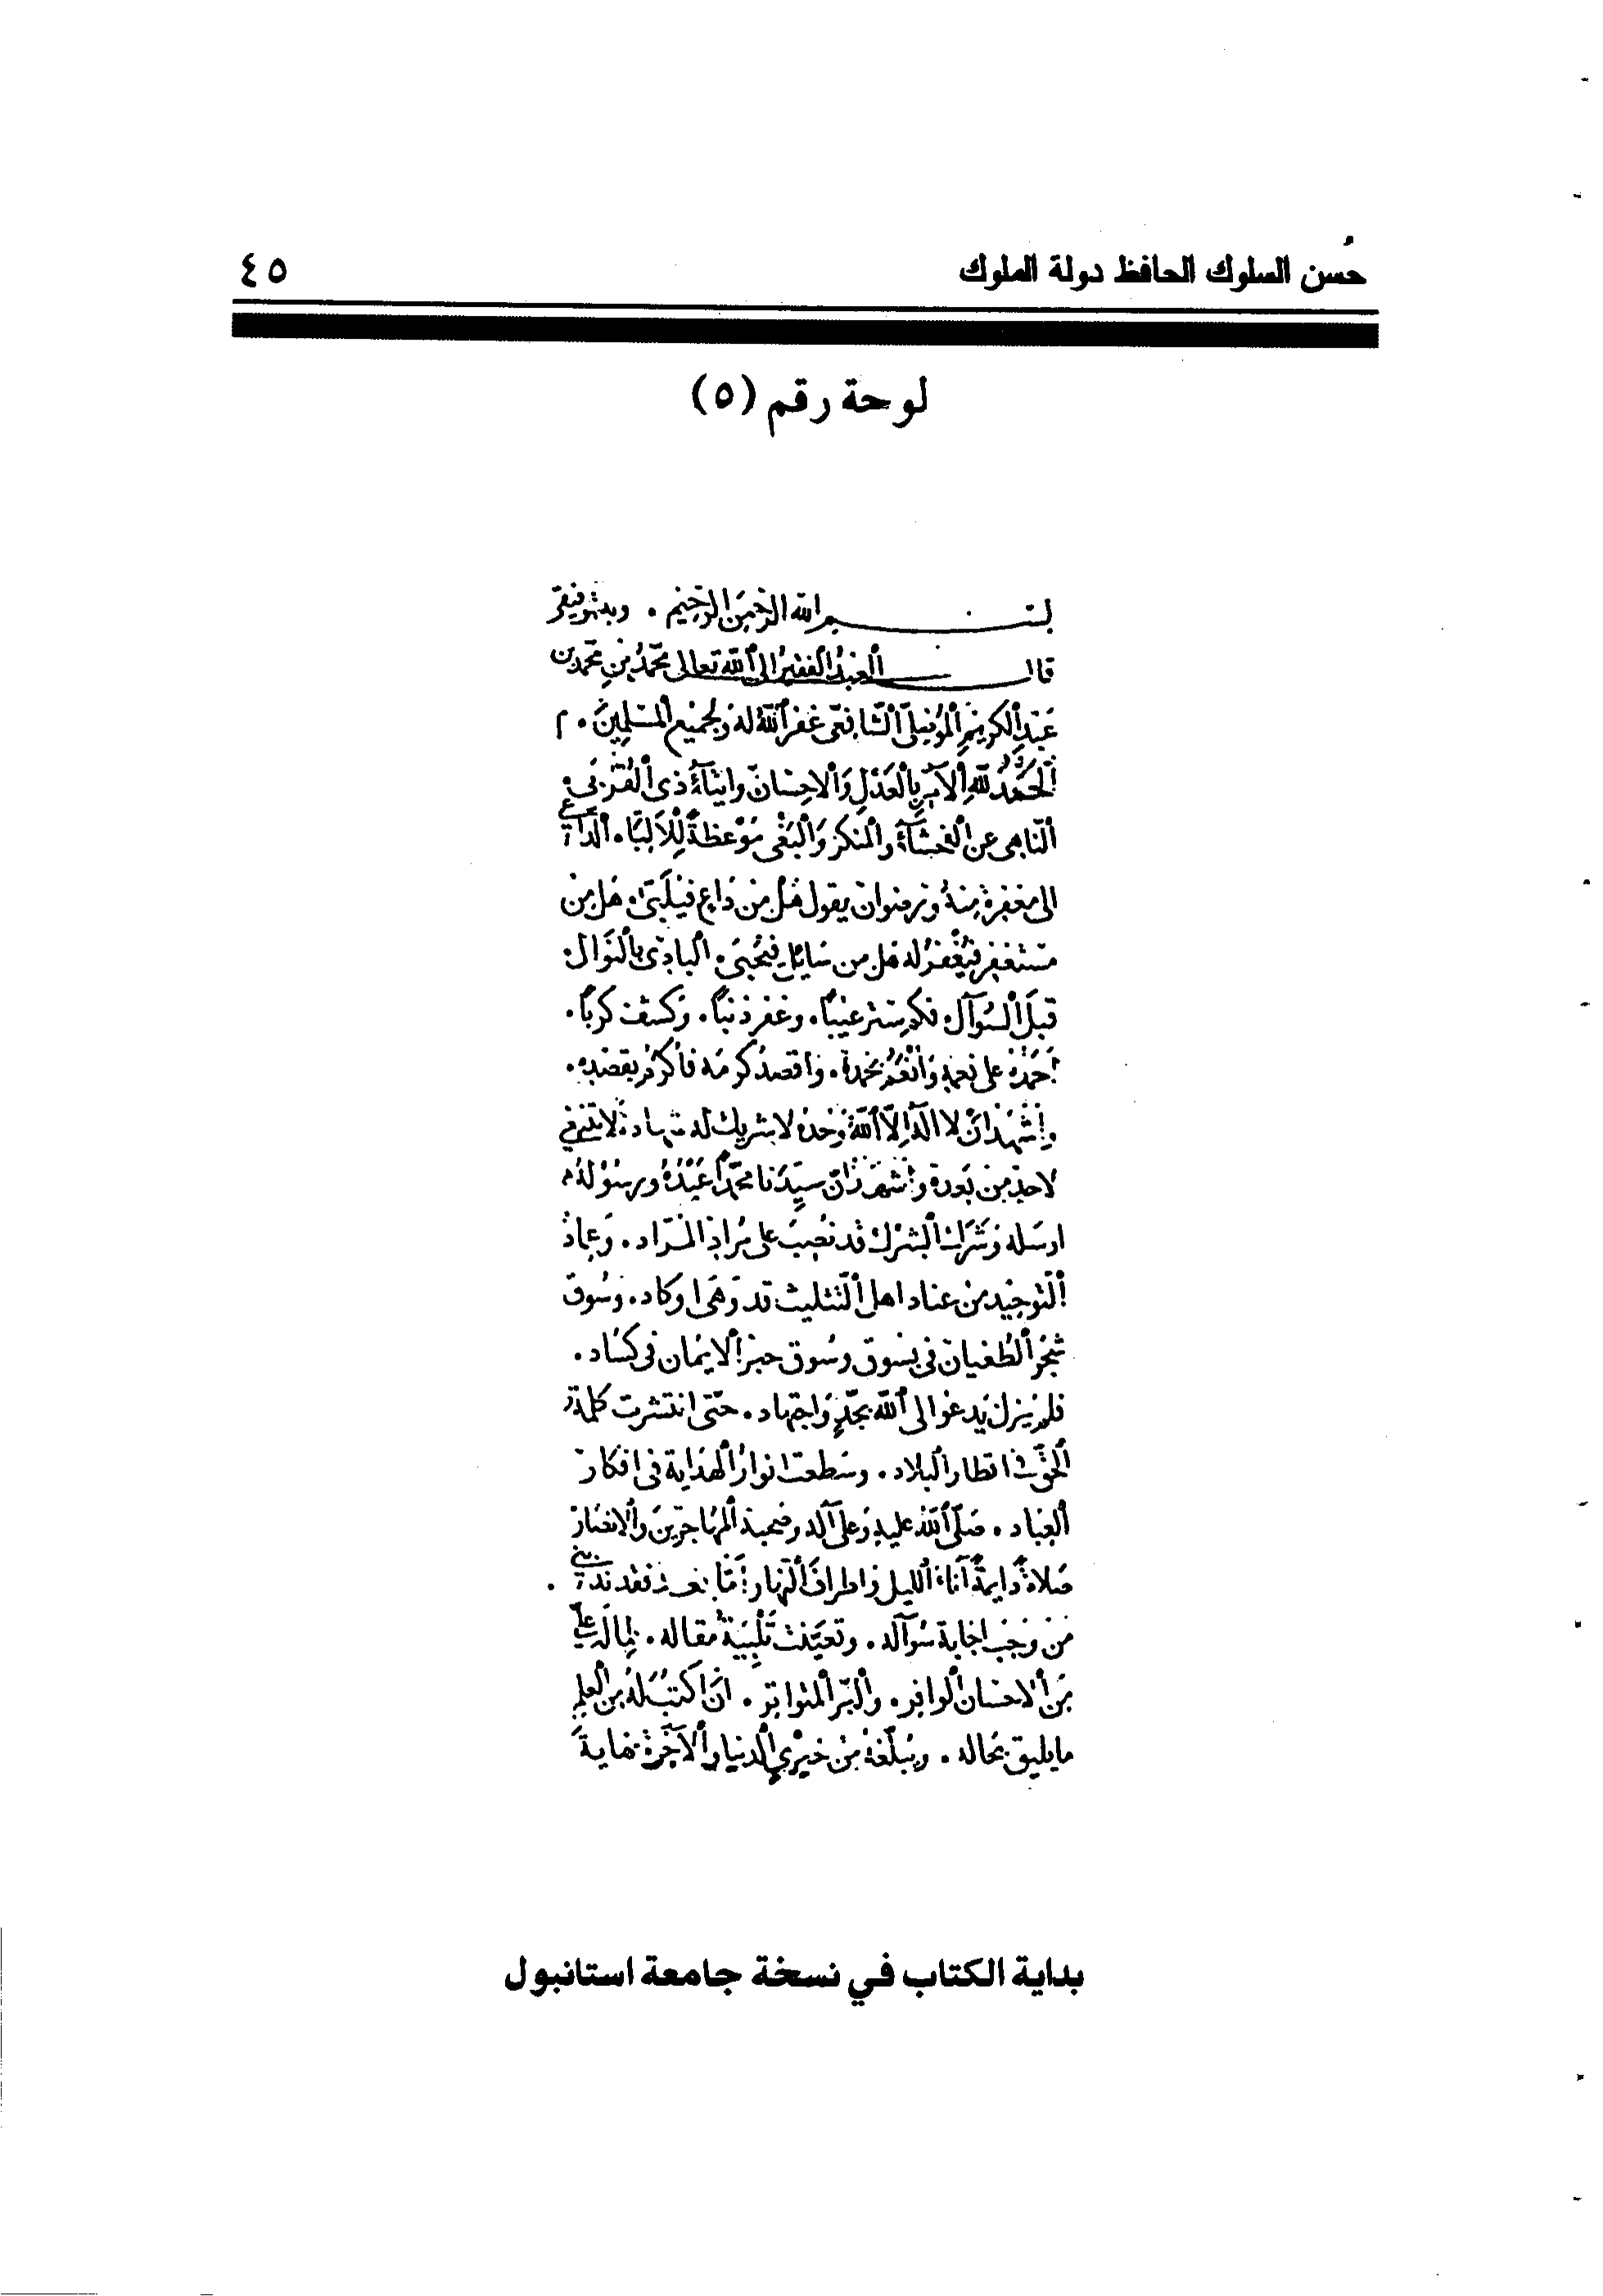 حُسن السلوك الحافظ دولة الملوك
٤٥
لوحة رقم (٥)
بسم الله الرحمن الرحيم . وبه توفيقي
قال العبد الفقير الى الله تعالى محمد بن محمد بن
عبد الكريم الموصلي الشافعي غفر الله له ولجميع المسلمين .
الحمد لله الآمر بالعدل والاحسان وايتآء ذى القربى .
الناهى عن الفحشآء والمنكر والبغى موعظة للالبا . الداعي
الى مغفرة منه ورضوان يقول هل من داع فيلبى . هل من
مستغفر فيغفر له هل من سايل فيحبى . البادى بالنوال
قبل السوآل . فكم ستر عيبا . وغفر ذنبا . وكشف كربا .
احمده على نعمه وأنعم بحمده . واقصد كرمه فأكرم بقصده .
واشهد ان لا اله إلا الله وحده لا شريك له شهادة لا تنبغي
لاحد من بعده واشهد ان سيدنا محمدا عبده ورسوله
ارسله وشرك الشرك قد نصب على مراد المراد . وعماد
التوحيد من عناد اهل التثليث قد وهى او كاد . وسوق
شجر الطغيان فى بسوق وسوق حبر الايمان فى كساد .
فلم يزل يدعو الى الله بجد واجتهاد . حتى انتشرت كلمة
الحق في اقطار البلاد . وسطعت انوار الهداية فى افكار
العباد . صلى الله عليه وعلى آله وصحبه المهاجرين والانصار
صلاة دايمة آناء الليل واطراف النهار أما بعد فقد ندبني
من وجب اجابة سوآله . وتعينت تلبية مقاله . لما له علي
من الاحسان الوافر . والبر المتواتر . ان اكتب له من العلم
ما يليق بحاله . ويبلغه من خيري الدنيا والآخرة نهاية
بداية الكتاب في نسخة جامعة استانبول